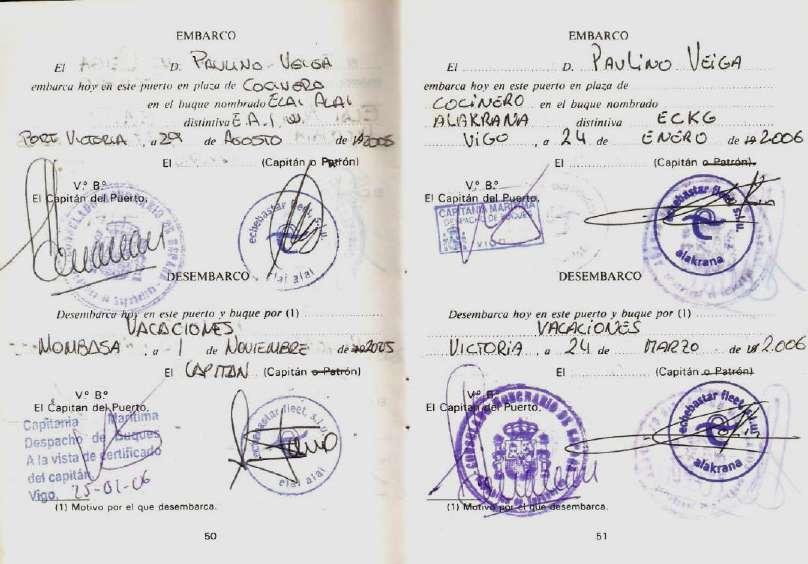 EMBARCO
El D. PAULINO VEIGA
embarca hoy en este puerto en plaza de COCINERO
en el buque nombrado ELAI ALAI
distintiva E.A.I W.
PORT VICTORIA, a 29 de AGOSTO de 2005
El (Capitán o Patrón)
V.º B.º
El Capitán del Puerto,
echebastar fleet s.l.u.
elai alai
DESEMBARCO
Desembarca hoy en este puerto y buque por (1)
VACACIONES
MOMBASA, a 1 de NOVIEMBRE de 2005
El CAPITAN (Capitán o Patrón)
V.º B.º
El Capitan del Puerto,
Capitania Maritima
Despacho de Buques
A la vista de certificado
del capitán
Vigo, 25-01-06
echebastar fleet s.l.u.
elai alai
(1) Motivo por el que desembarca.
50
EMBARCO
El D. PAULINO VEIGA
embarca hoy en este puerto en plaza de
COCINERO en el buque nombrado
ALAKRANA distintiva ECKG
VIGO, a 24 de ENERO de 2006
El (Capitán o Patrón)
V.º B.º
El Capitán del Puerto,
CAPITANIA MARITIMA
DESPACHO DE BUQUES
VIGO
echebastar fleet s.l.u.
alakrana
DESEMBARCO
Desembarca hoy en este puerto y buque por (1)
VACACIONES
VICTORIA, a 24 de MARZO de 2.006
El (Capitán o Patrón)
V.º B.º
El Capitan del Puerto,
echebastar fleet s.l.u.
alakrana
(1) Motivo por el que desembarca.
51